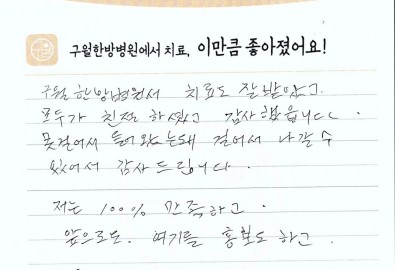 구월한방병원에서 치료, 이만큼 좋아졌어요!
구월한방병원서 치료도 잘받았고.
모두가 친절하였고 감사했읍니다.
못걸어서 들어왔는돼 걸어서 나갈 수
있어서 감사드립니다.
저는 100% 만족하고.
앞으로도. 여기를 홍보도 하고.